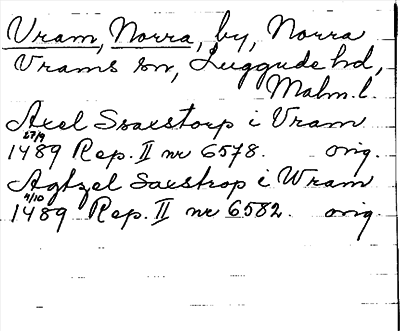 Vram, Norra, by, Norra
Vrams sn, Luggude hd,
Malm. l.
Axel Ssaestorp i Vram
27/9
1489 Rep. II nr 6578. orig.
Agtzel Saxstrop i Wram
4/10
1489 Rep. II nr 6582. orig.